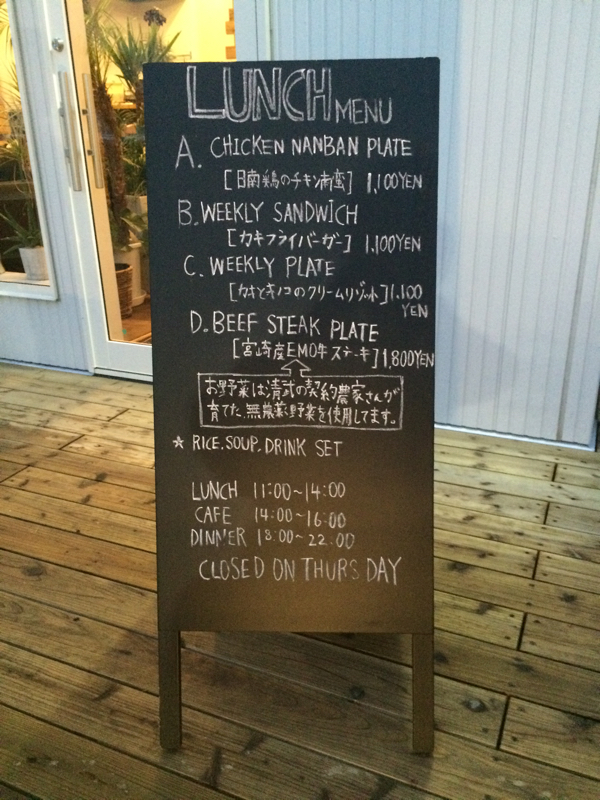 LUNCH MENU
A. CHICKEN NANBAN PLATE
[日南鶏のチキン南蛮] 1,100YEN
B. WEEKLY SANDWICH
[カキフライバーガー] 1,100YEN
C. WEEKLY PLATE
[カキとキノコのクリームリゾット] 1,100
YEN
D. BEEF STEAK PLATE
[宮崎産EMO牛ステーキ] 1,800YEN
お野菜は清武の契約農家さんが
育てた、無農薬野菜を使用してます。
★ RICE. SOUP. DRINK SET
LUNCH 11:00~14:00
CAFE 14:00~16:00
DINNER 18:00~22:00
CLOSED ON THURSDAY